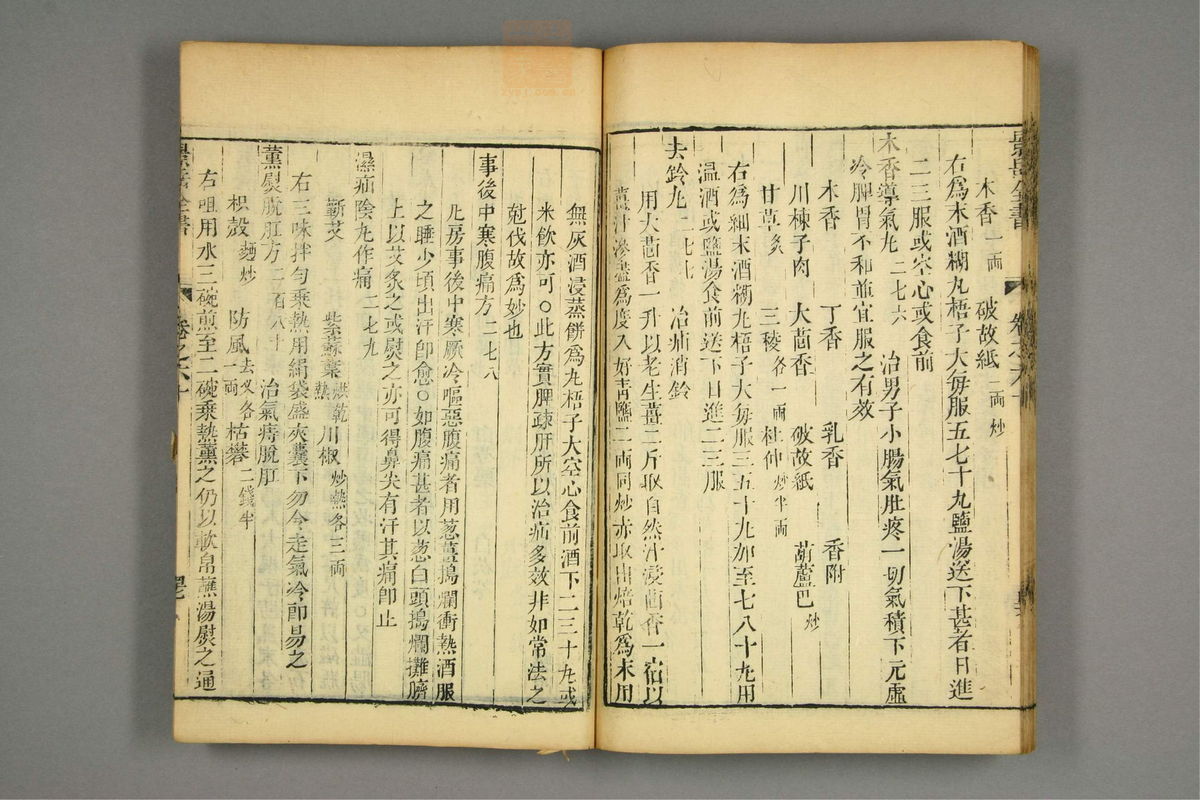 景岳全書
卷之六十
木香一兩 破故紙二兩炒
右爲末酒糊丸梧子大每服五七十丸鹽湯送下甚者日進
二三服或空心或食前
木香導氣丸二七六 治男子小腸氣肚疼一切氣積下元虛
冷脾胃不和並宜服之有效
木香 丁香 乳香 香附
川楝子肉 大茴香 破故紙 葫蘆巴炒
甘草炙 三稜各一兩 杜仲炒半兩
右爲細末酒糊丸梧子大每服三五十丸加至七八十丸用
溫酒或鹽湯食前送下日進二三服
去鈴丸二七七 治疝消鈴
用大茴香一升以老生薑二斤取自然汁浸茴香一宿以
薑汁滲盡爲度入好青鹽二兩同炒赤取出焙乾爲末用
無灰酒浸蒸餅爲丸梧子大空心食前酒下二三十丸或
米飲亦可○此方實脾疎肝所以治疝多效非如常法之
尅伐故爲妙也
事後中寒腹痛方二七八
凡房事後中寒厥冷嘔惡腹痛者用葱薑搗爛衝熱酒服
之睡少頃出汗卽愈○如腹痛甚者以葱白頭搗爛攤臍
上以艾炙之或熨之亦可得鼻尖有汗其痛卽止
濕疝陰丸作痛二七九
蘄艾 紫蘇葉烘乾熱 川椒炒熱各三兩
右三味拌勻乘熱用絹袋盛夾囊下勿令走氣冷卽易之
薰熨脫肛方二百八十 治氣痔脫肛
枳殼麵炒 防風去叉各一兩 枯礬二錢半
右咀用水三碗煎至二碗乘熱薰之仍以軟帛蘸湯熨之通
景岳全書
卷之六十